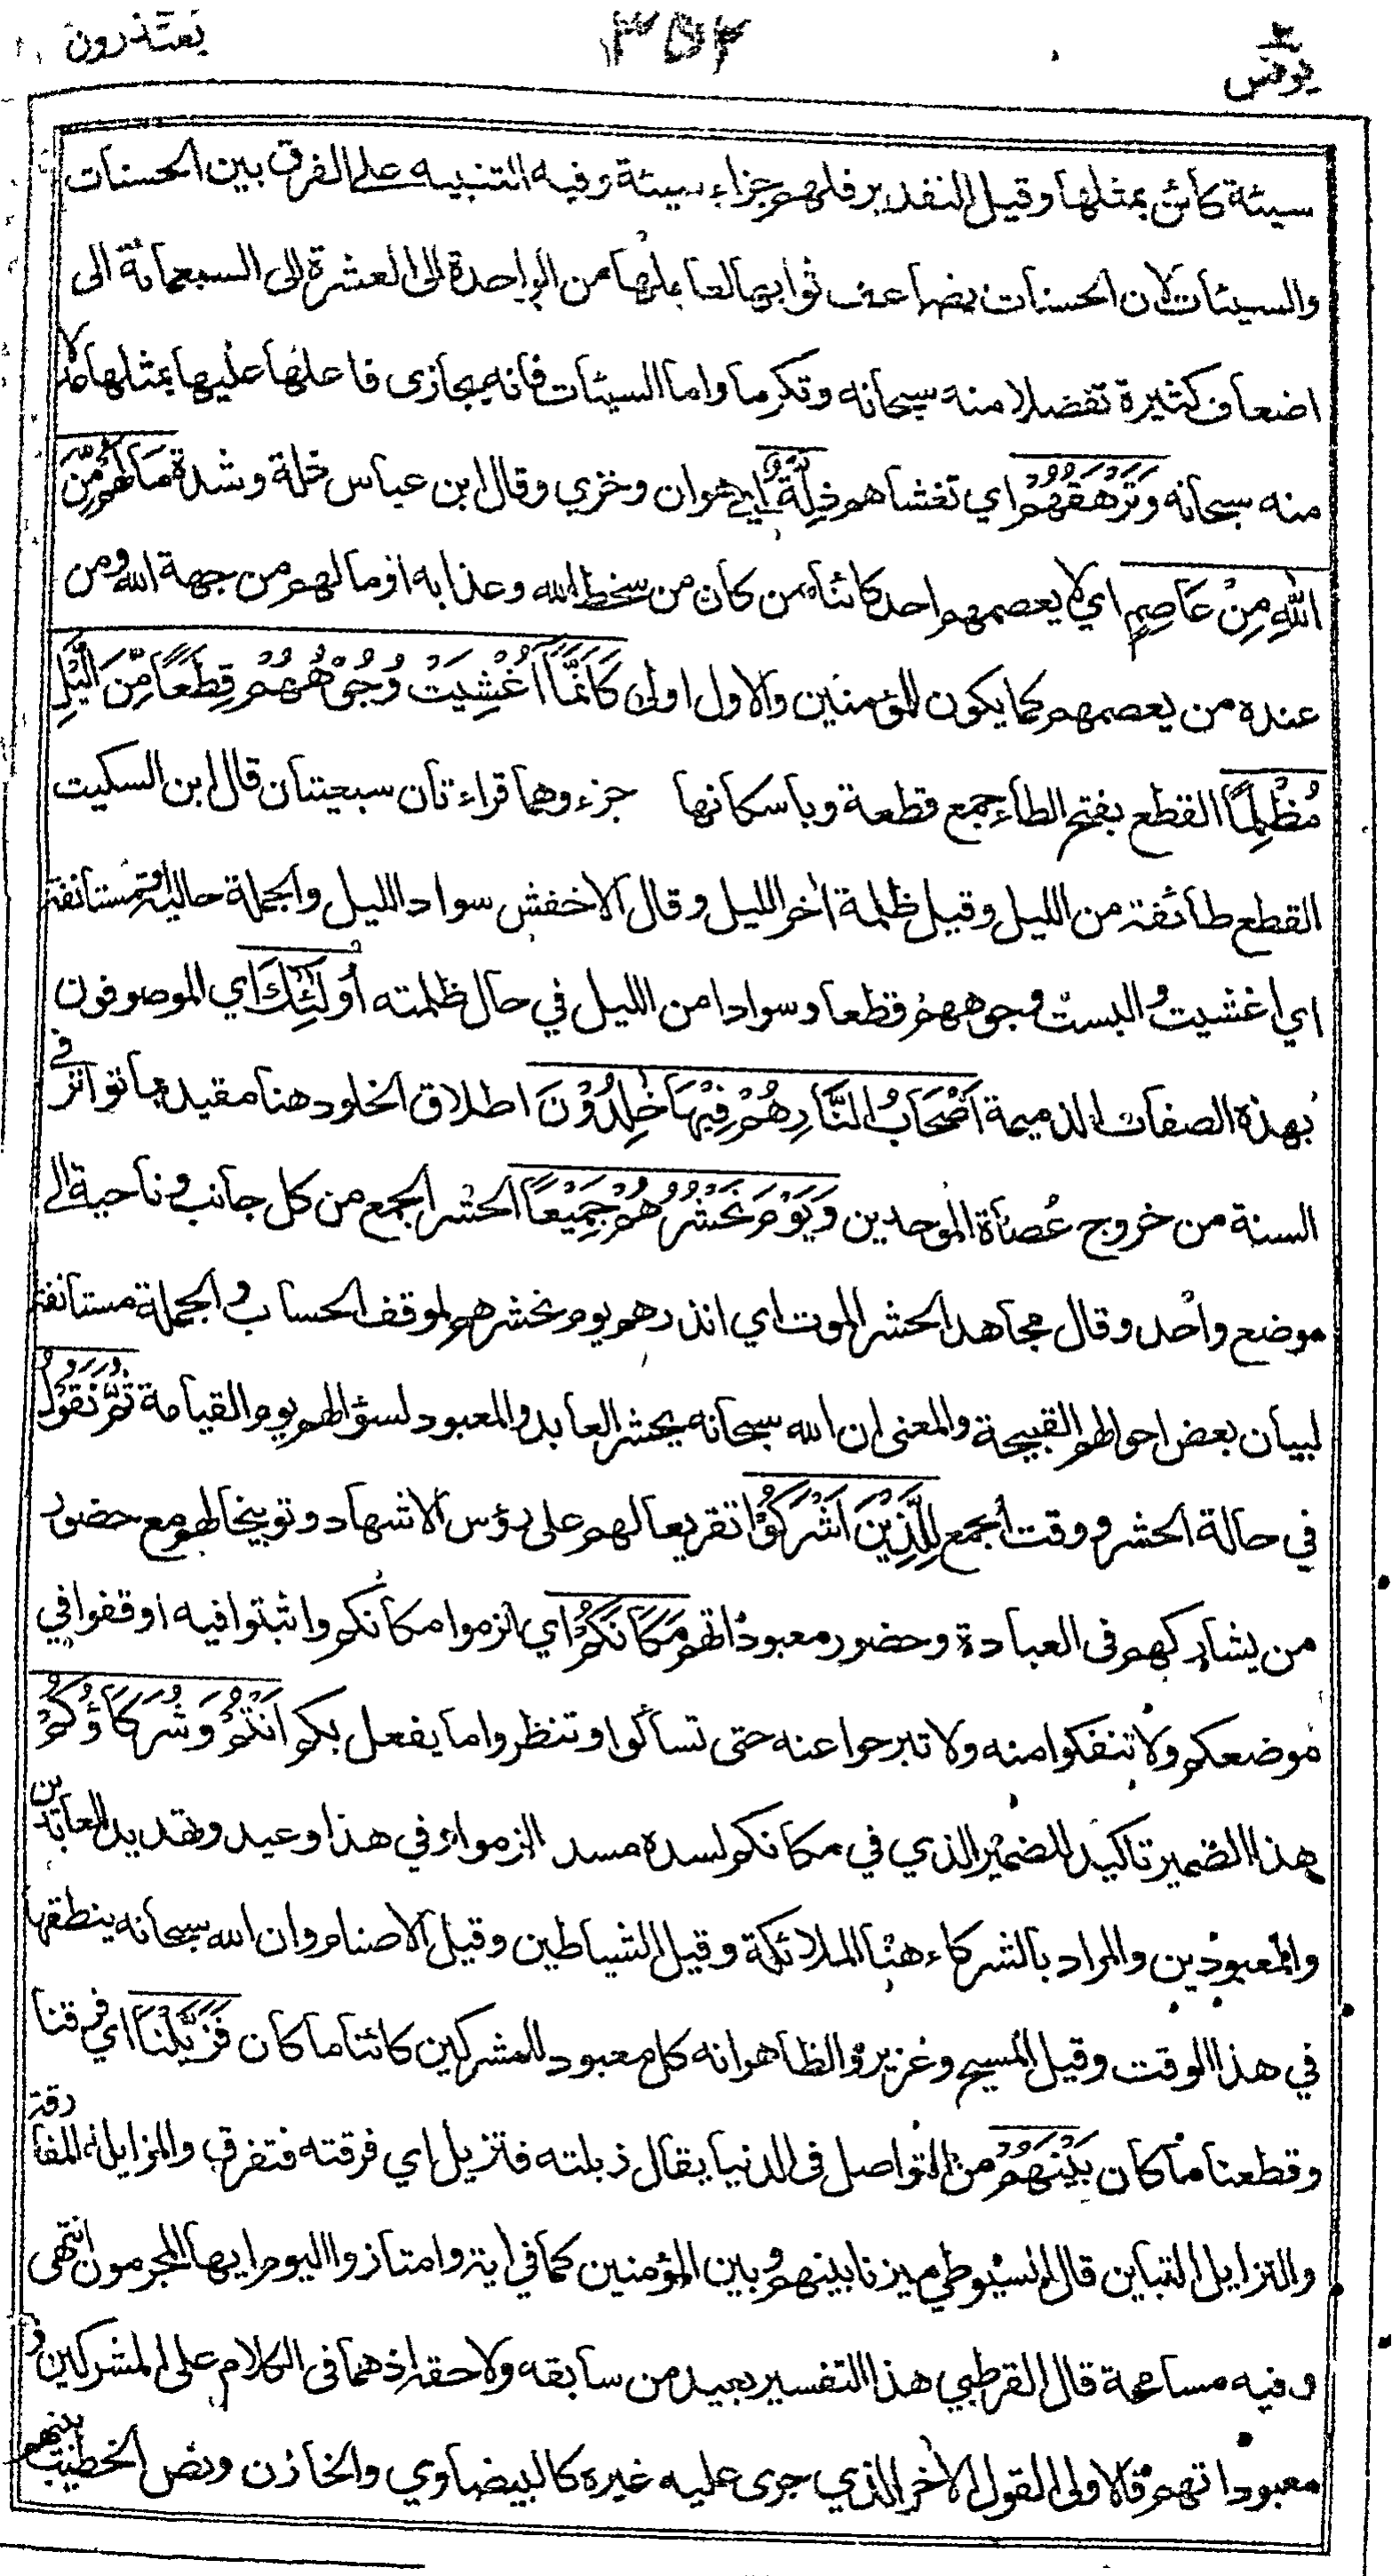 يونس
٣٥٤
يعتذرون
سيئة كائن بمثلها وقيل التقدير فلهم جزاء سيئة وفيه التنبيه على الفرق بين الحسنات
والسيئات لان الحسنات يضاعف ثوابها لعاملها من الواحدة الى العشرة الى السبعمائة الى
اضعاف كثيرة تفضلا منه سبحانه وتكرما واما السيئات فانه يجازى فاعلها عليها بمثلها
منه سبحانه وَتَرْهَقُهُمْ اي تغشاهم ذِلَّةٌ اي هوان وخزي وقال ابن عباس ذلة وشدة مَا لَهُمْ مِّنَ
اللّٰهِ مِنْ عَاصِمٍ اي لا يعصمهم احد كائنا من كان من سخط الله وعذابه او ما لهم من جهة الله ومن
عنده من يعصمهم كما يكون للمؤمنين والاول اولى كَاَنَّمَا اُغْشِيَتْ وُجُوْهُهُمْ قِطَعًا مِّنَ الَّيْلِ
مُظْلِمًا القطع بفتح الطاء جمع قطعة وباسكانها جزء وهما قراءتان سبعيتان قال ابن السكيت
القطع طائفة من الليل وقيل ظلمة اخر الليل وقال الاخفش سواد الليل والجملة حالية او مستانفة
اي اغشيت والبست وجوههم قطعا وسوادا من الليل في حال ظلمته اُولٰٓئِكَ اي الموصوفون
بهذه الصفات الذميمة اَصْحَابُ النَّارِ هُمْ فِيْهَا خٰلِدُوْنَ اطلاق الخلود هنا مقيد بما تواتر في
السنة من خروج عُصاة الموحدين وَيَوْمَ نَحْشُرُهُمْ جَمِيْعًا الحشر الجمع من كل جانب وناحية الى
موضع واحد وقال مجاهد الحشر الموت اي انذرهم يوم نحشرهم لموقف الحساب والجملة مستانفة
لبيان بعض احوالهم القبيحة والمعنى ان الله سبحانه يحشر العابد والمعبود لسؤالهم يوم القيامة ثُمَّ نَقُوْلُ
في حالة الحشر ووقت الجمع لِلَّذِيْنَ اَشْرَكُوْا تقريعا لهم على رؤس الاشهاد وتوبيخا لهم مع حضور
من يشاركهم فى العبادة وحضور معبوداتهم مَكَانَكُمْ اي الزموا مكانكم واثبتوا فيه اوقفوا في
موضعكم ولا تنفكوا منه ولا تبرحوا عنه حتى تسألوا وتنظروا ما يفعل بكم اَنْتُمْ وَشُرَكَاؤُكُمْ
هذا الضمير تاكيد للضمير الذي في مكانكم لسده مسد الزموا وفي هذا وعيد وتهديد للعابدين
والمعبودين والمراد بالشركاء هنا الملائكة وقيل الشياطين وقيل الاصنام وان الله سبحانه ينطقها
في هذا الوقت وقيل المسيح وعزير والظاهر انه كل معبود للمشركين كائنا ما كان فَزَيَّلْنَا اي فرقنا
وقطعنا ما كان بَيْنَهُمْ من التواصل فى الدنيا يقال زيلته فتزيل اي فرقته فتفرق والمزايلة المفارقة
والتزايل التباين قال السيوطي ميزنا بينهم وبين المؤمنين كما في اية وامتازوا اليوم ايها المجرمون انتهى
وفيه مسامحة قال القرطبي هذا التفسير بعيد من سابقه ولاحقه اذ هما فى الكلام على المشركين و
معبوداتهم فالاولى القول الاخر الذي جرى عليه غيره كالبيضاوي والخازن ونص الخطيب بينهم